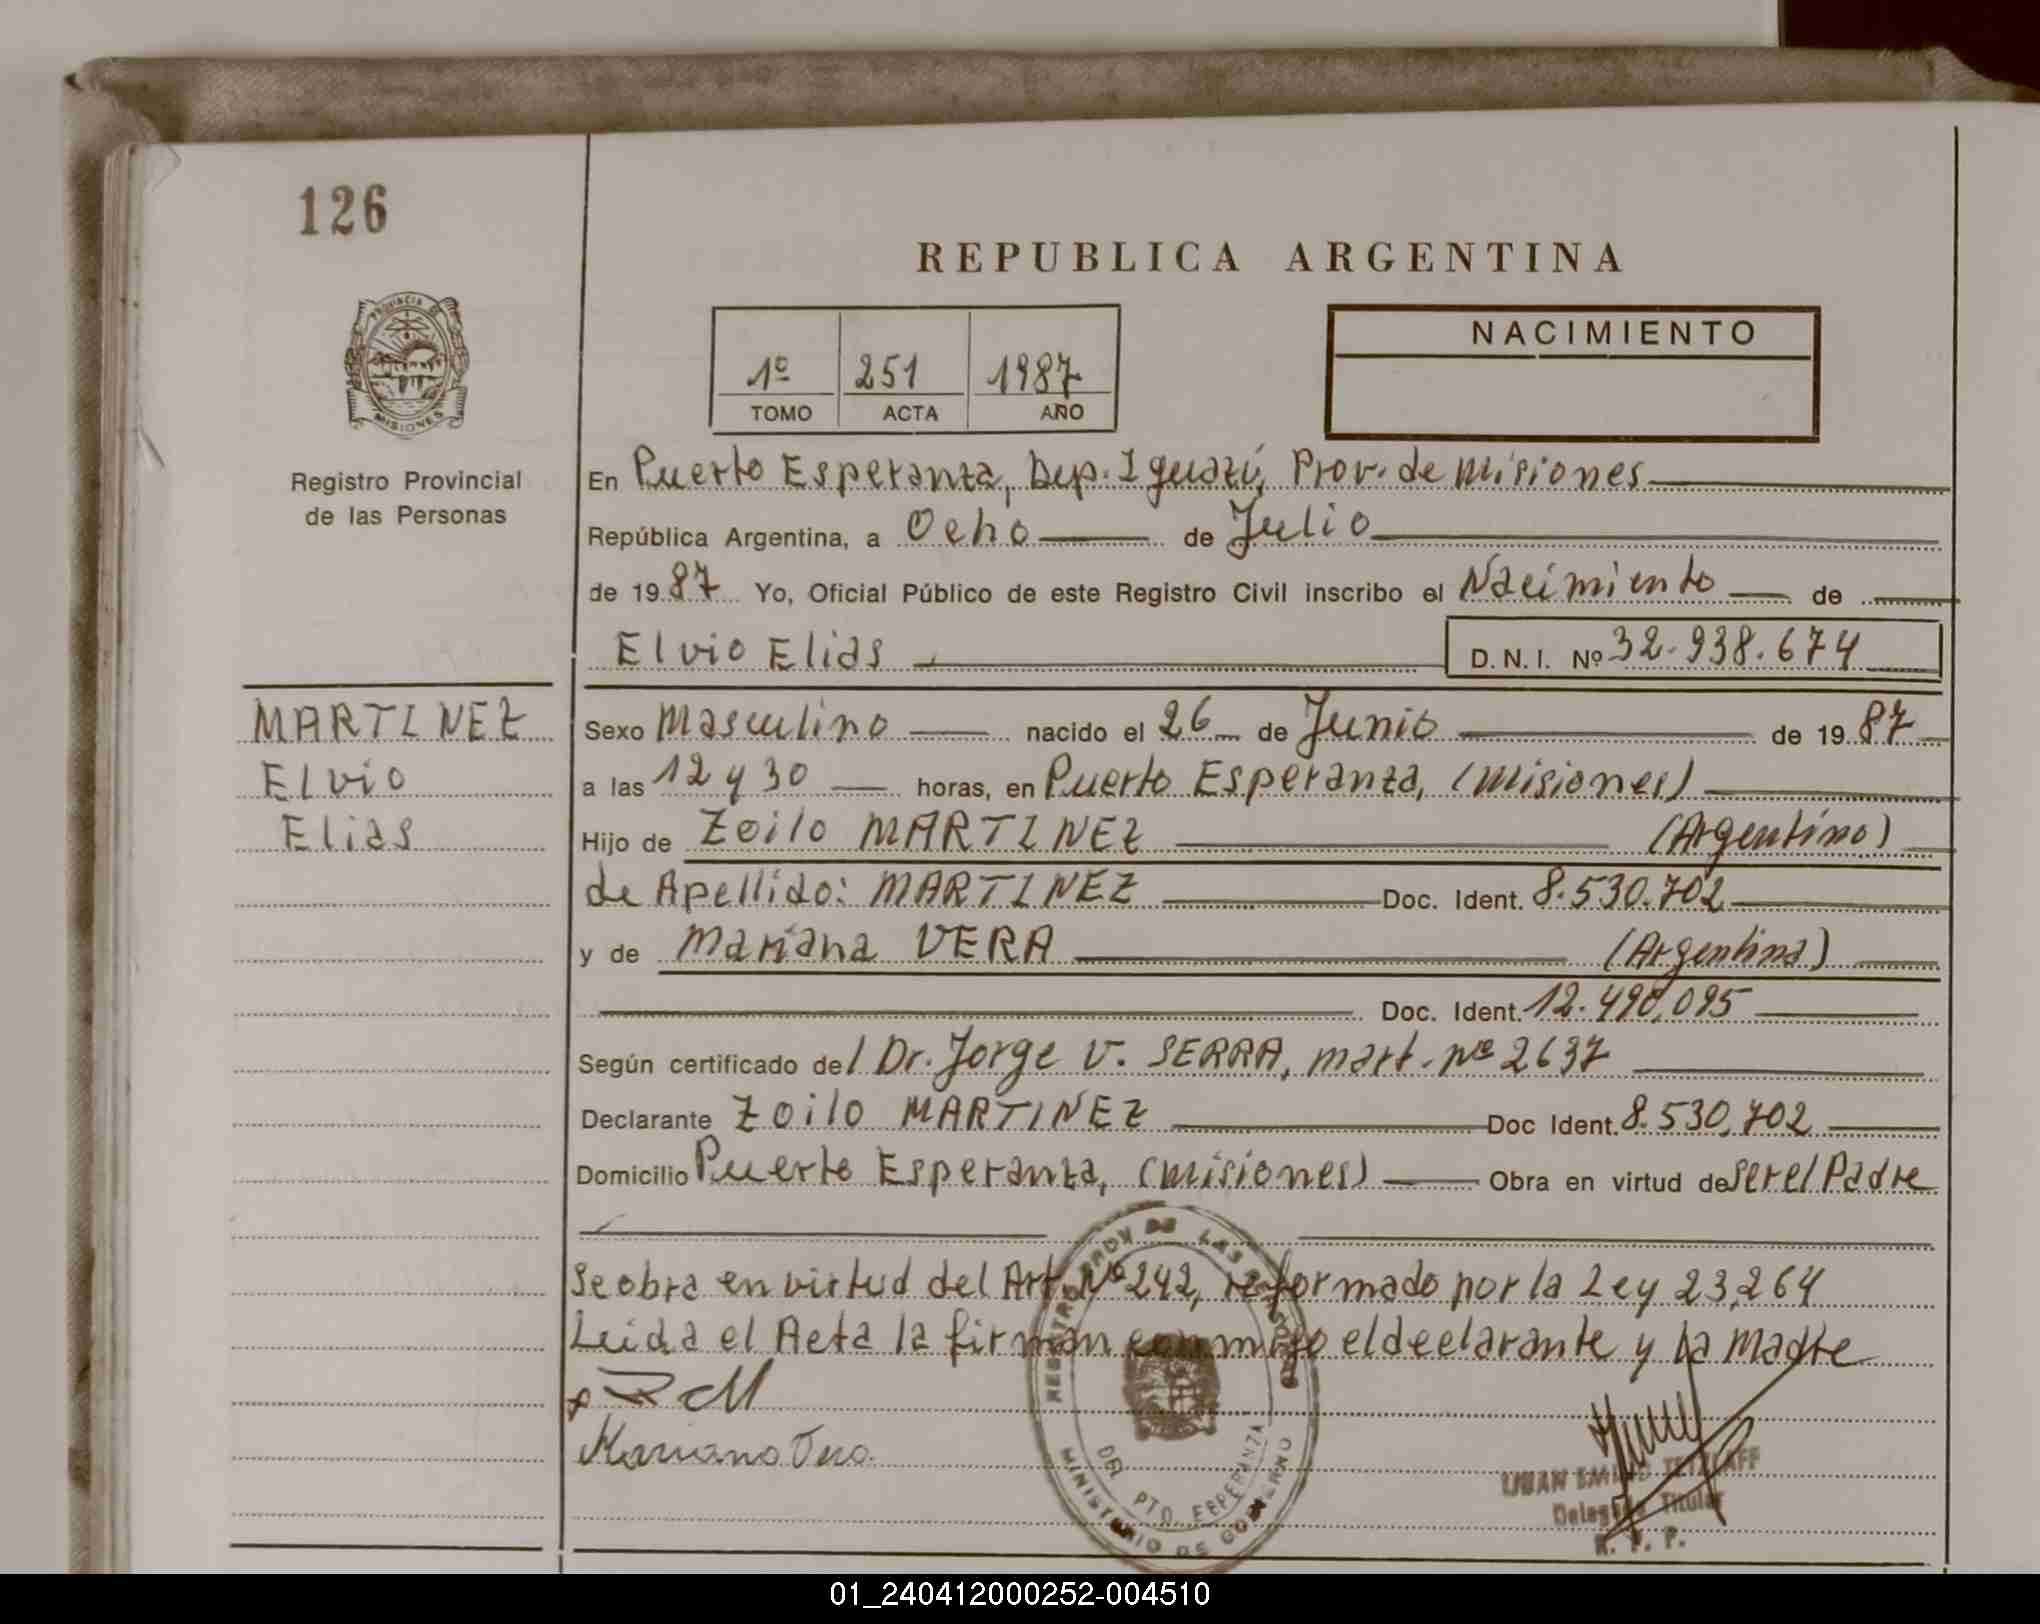 126
REPUBLICA ARGENTINA
PROVINCIA DE
MISIONES
Registro Provincial
de las Personas
1º 251 1987
TOMO ACTA AÑO
NACIMIENTO
En Puerto Esperanza, Dep. Iguazú, Prov. de Misiones
República Argentina, a Ocho de Julio
de 1987 Yo, Oficial Público de este Registro Civil inscribo el Nacimiento de
Elvio Elias D.N.I. Nº 32.938.674
MARTINEZ
Elvio
Elias
Sexo Masculino nacido el 26 de Junio de 1987
a las 12 y 30 horas, en Puerto Esperanza, (Misiones)
Hijo de Zoilo MARTINEZ (Argentino)
de Apellido: MARTINEZ Doc. Ident. 8.530.702
y de Mariana VERA (Argentina)
Doc. Ident. 12.490.095
Según certificado del Dr. Jorge V. SERRA, mart. Nº 2637
Declarante Zoilo MARTINEZ Doc Ident. 8.530.702
Domicilio Puerto Esperanza, (Misiones) Obra en virtud de ser el Padre
Se obra en virtud del Art. Nº 242, reformado por la Ley 23.264
Leida el Acta la firman conmigo el declarante y la Madre
REGISTRO PROV DE LAS PERSONAS
DEL PTO. ESPERANZA
MINISTERIO DE GOBIERNO
TETZLAFF
Delegado Titular
R. P. P.
01_240412000252-004510